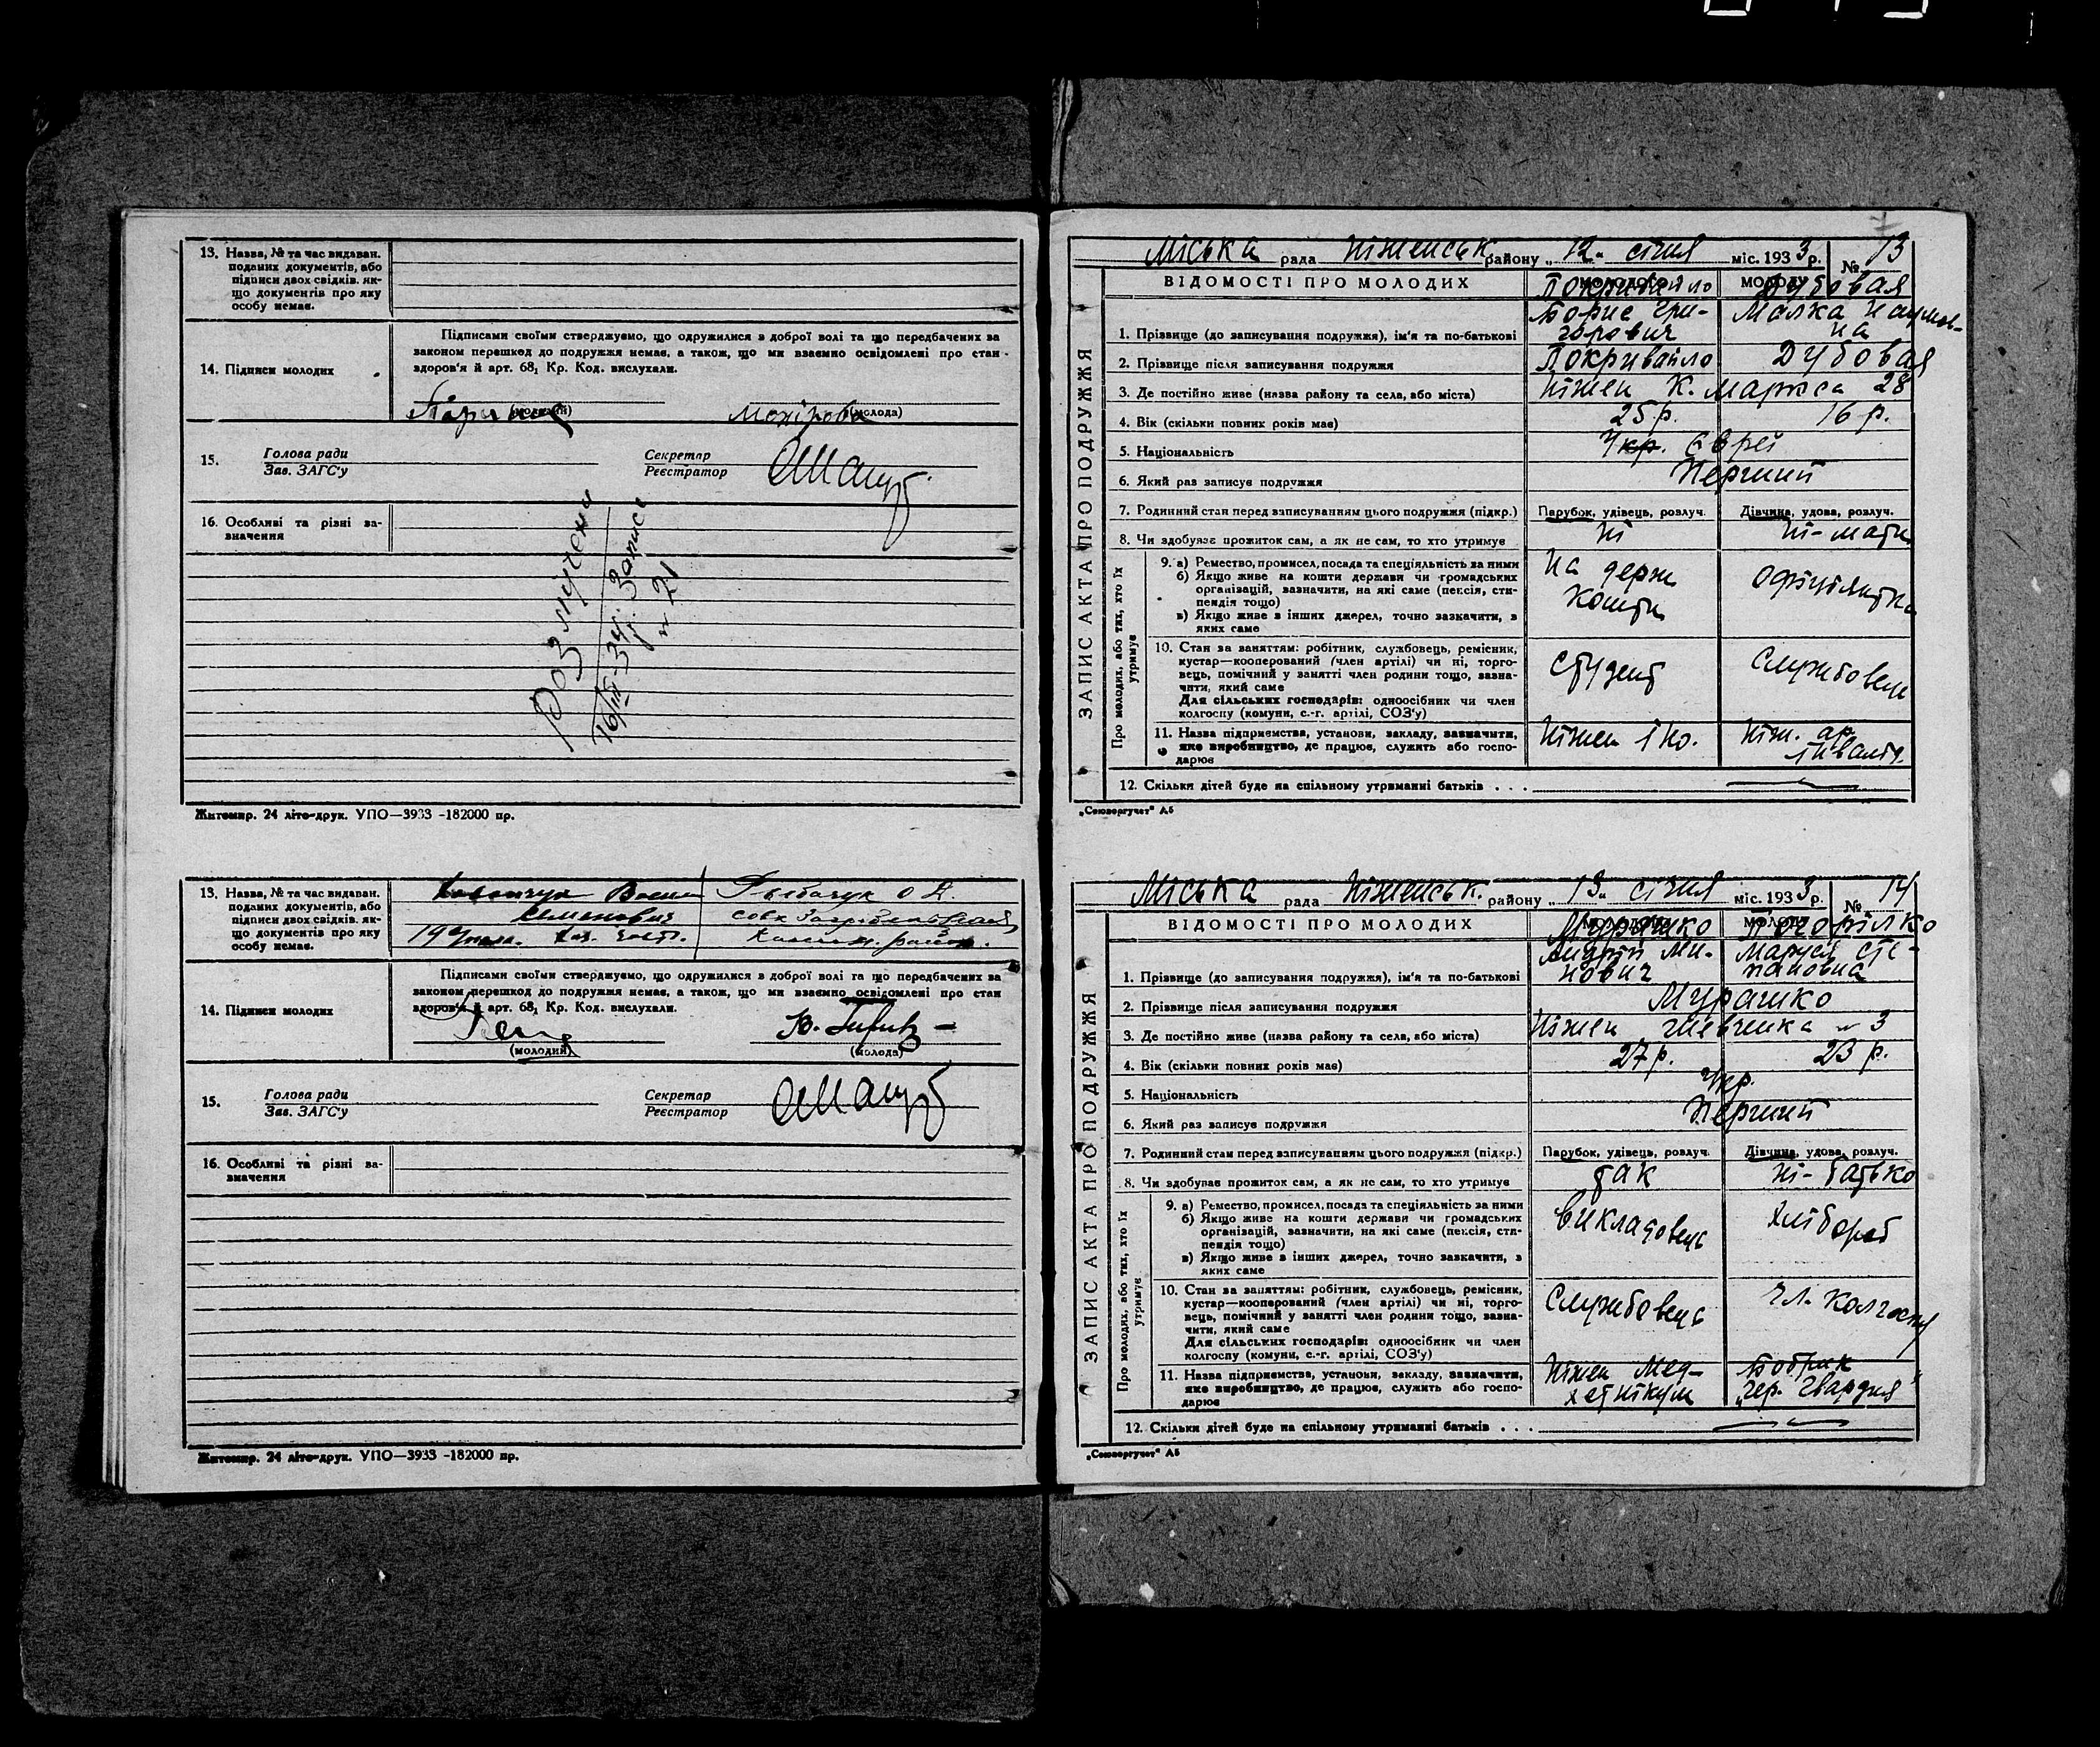 13. Назва, № та час видаван.
поданих документів, або
підписи двох свідків, як-
що документів про яку
особу немає.
Підписами своїми стверджуємо, що одружилися з доброї волі та що передбачених за
законом перешкод до подружжя немає, а також, що ми взаємно освідомлені про стан
здоров'я й арт. 68₁ Кр. Код. вислухали.
14. Підписи молодих
(молодий) (молода)
15. Голова ради Секретар
Зав. ЗАГС'у Реєстратор
16. Особливі та різні за-
значення
Розлучени
16/III-34 р. Запис
№ 21
Житомир. 24 літо-друк. УПО—3933 -182000 пр.
13. Назва, № та час видаван.
поданих документів, або
підписи двох свідків, як-
що документів про яку
особу немає.
Семенович
Рыбачук О
Підписами своїми стверджуємо, що одружилися з доброї волі та що передбачених за
законом перешкод до подружжя немає, а також, що ми взаємно освідомлені про стан
здоров'я й арт. 68₁ Кр. Код. вислухали.
14. Підписи молодих
(молодий) (молода)
15. Голова ради Секретар
Зав. ЗАГС'у Реєстратор
16. Особливі та різні за-
значення
Житомир. 24 літо-друк. УПО—3933 -182000 пр.
ЗАПИС АКТА ПРО ПОДРУЖЖЯ
Міська рада Ніженськ району „12" січня міс. 1933 р. № 13
ВІДОМОСТІ ПРО МОЛОДИХ
Покривайло Дубовая
Борис Гри- Малка Наумов-
1. Прізвище (до записування подружжя), ім'я та по-батькові горович на
2. Прізвище після записування подружжя Покривайло Дубовая
3. Де постійно живе (назва району та села, або міста) Ніжен К. Маркса 28
4. Вік (скільки повних років має) 25 р. 16 р.
5. Національність Укр. Єврей
6. Який раз записує подружжя Перший
7. Родинний стан перед записуванням цього подружжя (підкр.) Парубок, удівець, розлуч. Дівчина, удова, розлуч.
8. Чи здобуває прожиток сам, а як не сам, то хто утримує ні ні-мати
Про молодих, або тих, хто їх утримує
9. а) Ремество, промисел, посада та спеціяльність за ними
б) Якщо живе на кошти держави чи громадських
організацій, зазначити, на які саме (пенсія, сти-
пендія тощо)
в) Якщо живе з інших джерел, точно зазначити, з
яких саме
На держ
кошти
офіціянтка
10. Стан за заняттям: робітник, службовець, ремісник,
кустар—кооперований (член артілі) чи ні, торго-
вець, помічний у занятті член родини тощо, зазна-
чити, який саме
Для сільських господарів: одноосібник чи член
колгоспу (комуни, с.-г. артілі, СОЗ'у)
студент
службовець
11. Назва підприємства, установи, закладу, зазначити,
яке виробництво, де працює, служить або госпо-
дарює
Ніжен ІНО.
Ніж. ар.
12. Скільки дітей буде на спільному утриманні батьків . . .
„Союзоргучет" А5
ЗАПИС АКТА ПРО ПОДРУЖЖЯ
Міська рада Ніженськ. району „13" січня міс. 1933 р. № 14
ВІДОМОСТІ ПРО МОЛОДИХ
Мурашко Погорілко
Андрій Ми- Маруся Сте-
1. Прізвище (до записування подружжя), ім'я та по-батькові нович пановна
2. Прізвище після записування подружжя Мурашко
3. Де постійно живе (назва району та села, або міста) Ніжен Шевченка № 3
4. Вік (скільки повних років має) 27 р. 23 р.
5. Національність Укр.
6. Який раз записує подружжя Перший
7. Родинний стан перед записуванням цього подружжя (підкр.) Парубок, удівець, розлуч. Дівчина, удова, розлуч.
8. Чи здобуває прожиток сам, а як не сам, то хто утримує так ні-батько
Про молодих, або тих, хто їх утримує
9. а) Ремество, промисел, посада та спеціяльність за ними
б) Якщо живе на кошти держави чи громадських
організацій, зазначити, на які саме (пенсія, сти-
пендія тощо)
в) Якщо живе з інших джерел, точно зазначити, з
яких саме
Викладовець
хлібороб
10. Стан за заняттям: робітник, службовець, ремісник,
кустар—кооперований (член артілі) чи ні, торго-
вець, помічний у занятті член родини тощо, зазна-
чити, який саме
Для сільських господарів: одноосібник чи член
колгоспу (комуни, с.-г. артілі, СОЗ'у)
Службовець
чл. колгоспу
11. Назва підприємства, установи, закладу, зазначити,
яке виробництво, де працює, служить або госпо-
дарює
Ніжен Мед-
хетнікум
Бобрик
„Чер. Гвардия"
12. Скільки дітей буде на спільному утриманні батьків . . .
„Союзоргучет" А5